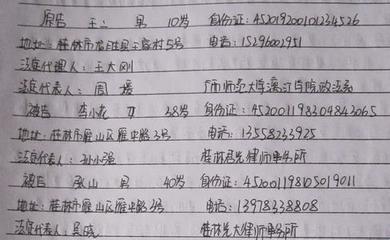 原告 王二 男 10岁 身份证：452019200101234526
地址：桂林市龙胜县王家村5号 电话：15296002951
法定代理人：王大刚
法庭代表人：周 媛 广西师范大学漓江学院政法系
被告 李小花 女 38岁 身份证：452001198304843065
地址：桂林市雁山区雁中路3号 电话：13558233925
法庭代表人：孙小强 桂林君先律师事务所
被告 张山 男 40岁 身份证：452001198105019011
地址：桂林市雁山区雁中路3号 电话：13978338808
法庭代表人：吴成 桂林先大律师事务所